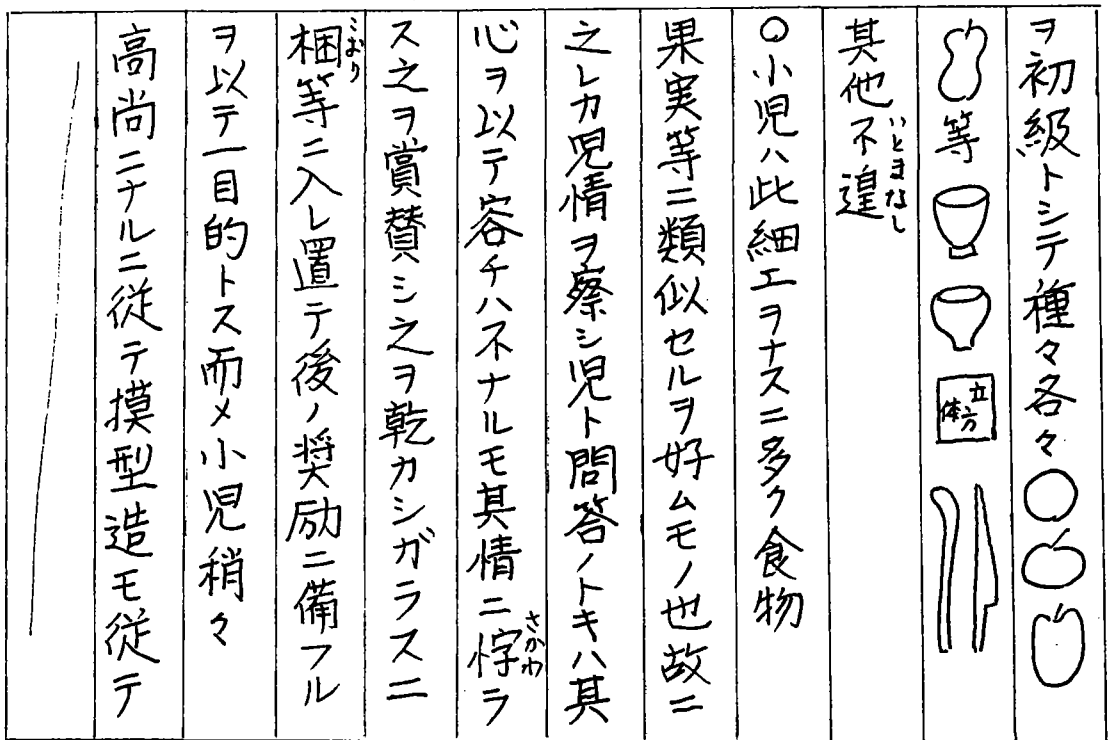 ヲ初級トシテ種々各々
等 立方体
其他不遑いとまなし
○小児ハ此細工ヲナスニ多ク食物
果実等ニ類似セルヲ好ムモノ也故ニ
之レカ児情ヲ察シ児ト問答ノトキハ其
心ヲ以テ容チハ不ナルモ其情ニ悖さかわラ
ス之ヲ賞賛シ之ヲ乾カシガラスニ
梱こおり等ニ入レ置テ後ノ奨励ニ備フル
ヲ以テ一目的トス而メ小児稍々
高尚ニナルニ従テ摸型造モ従テ